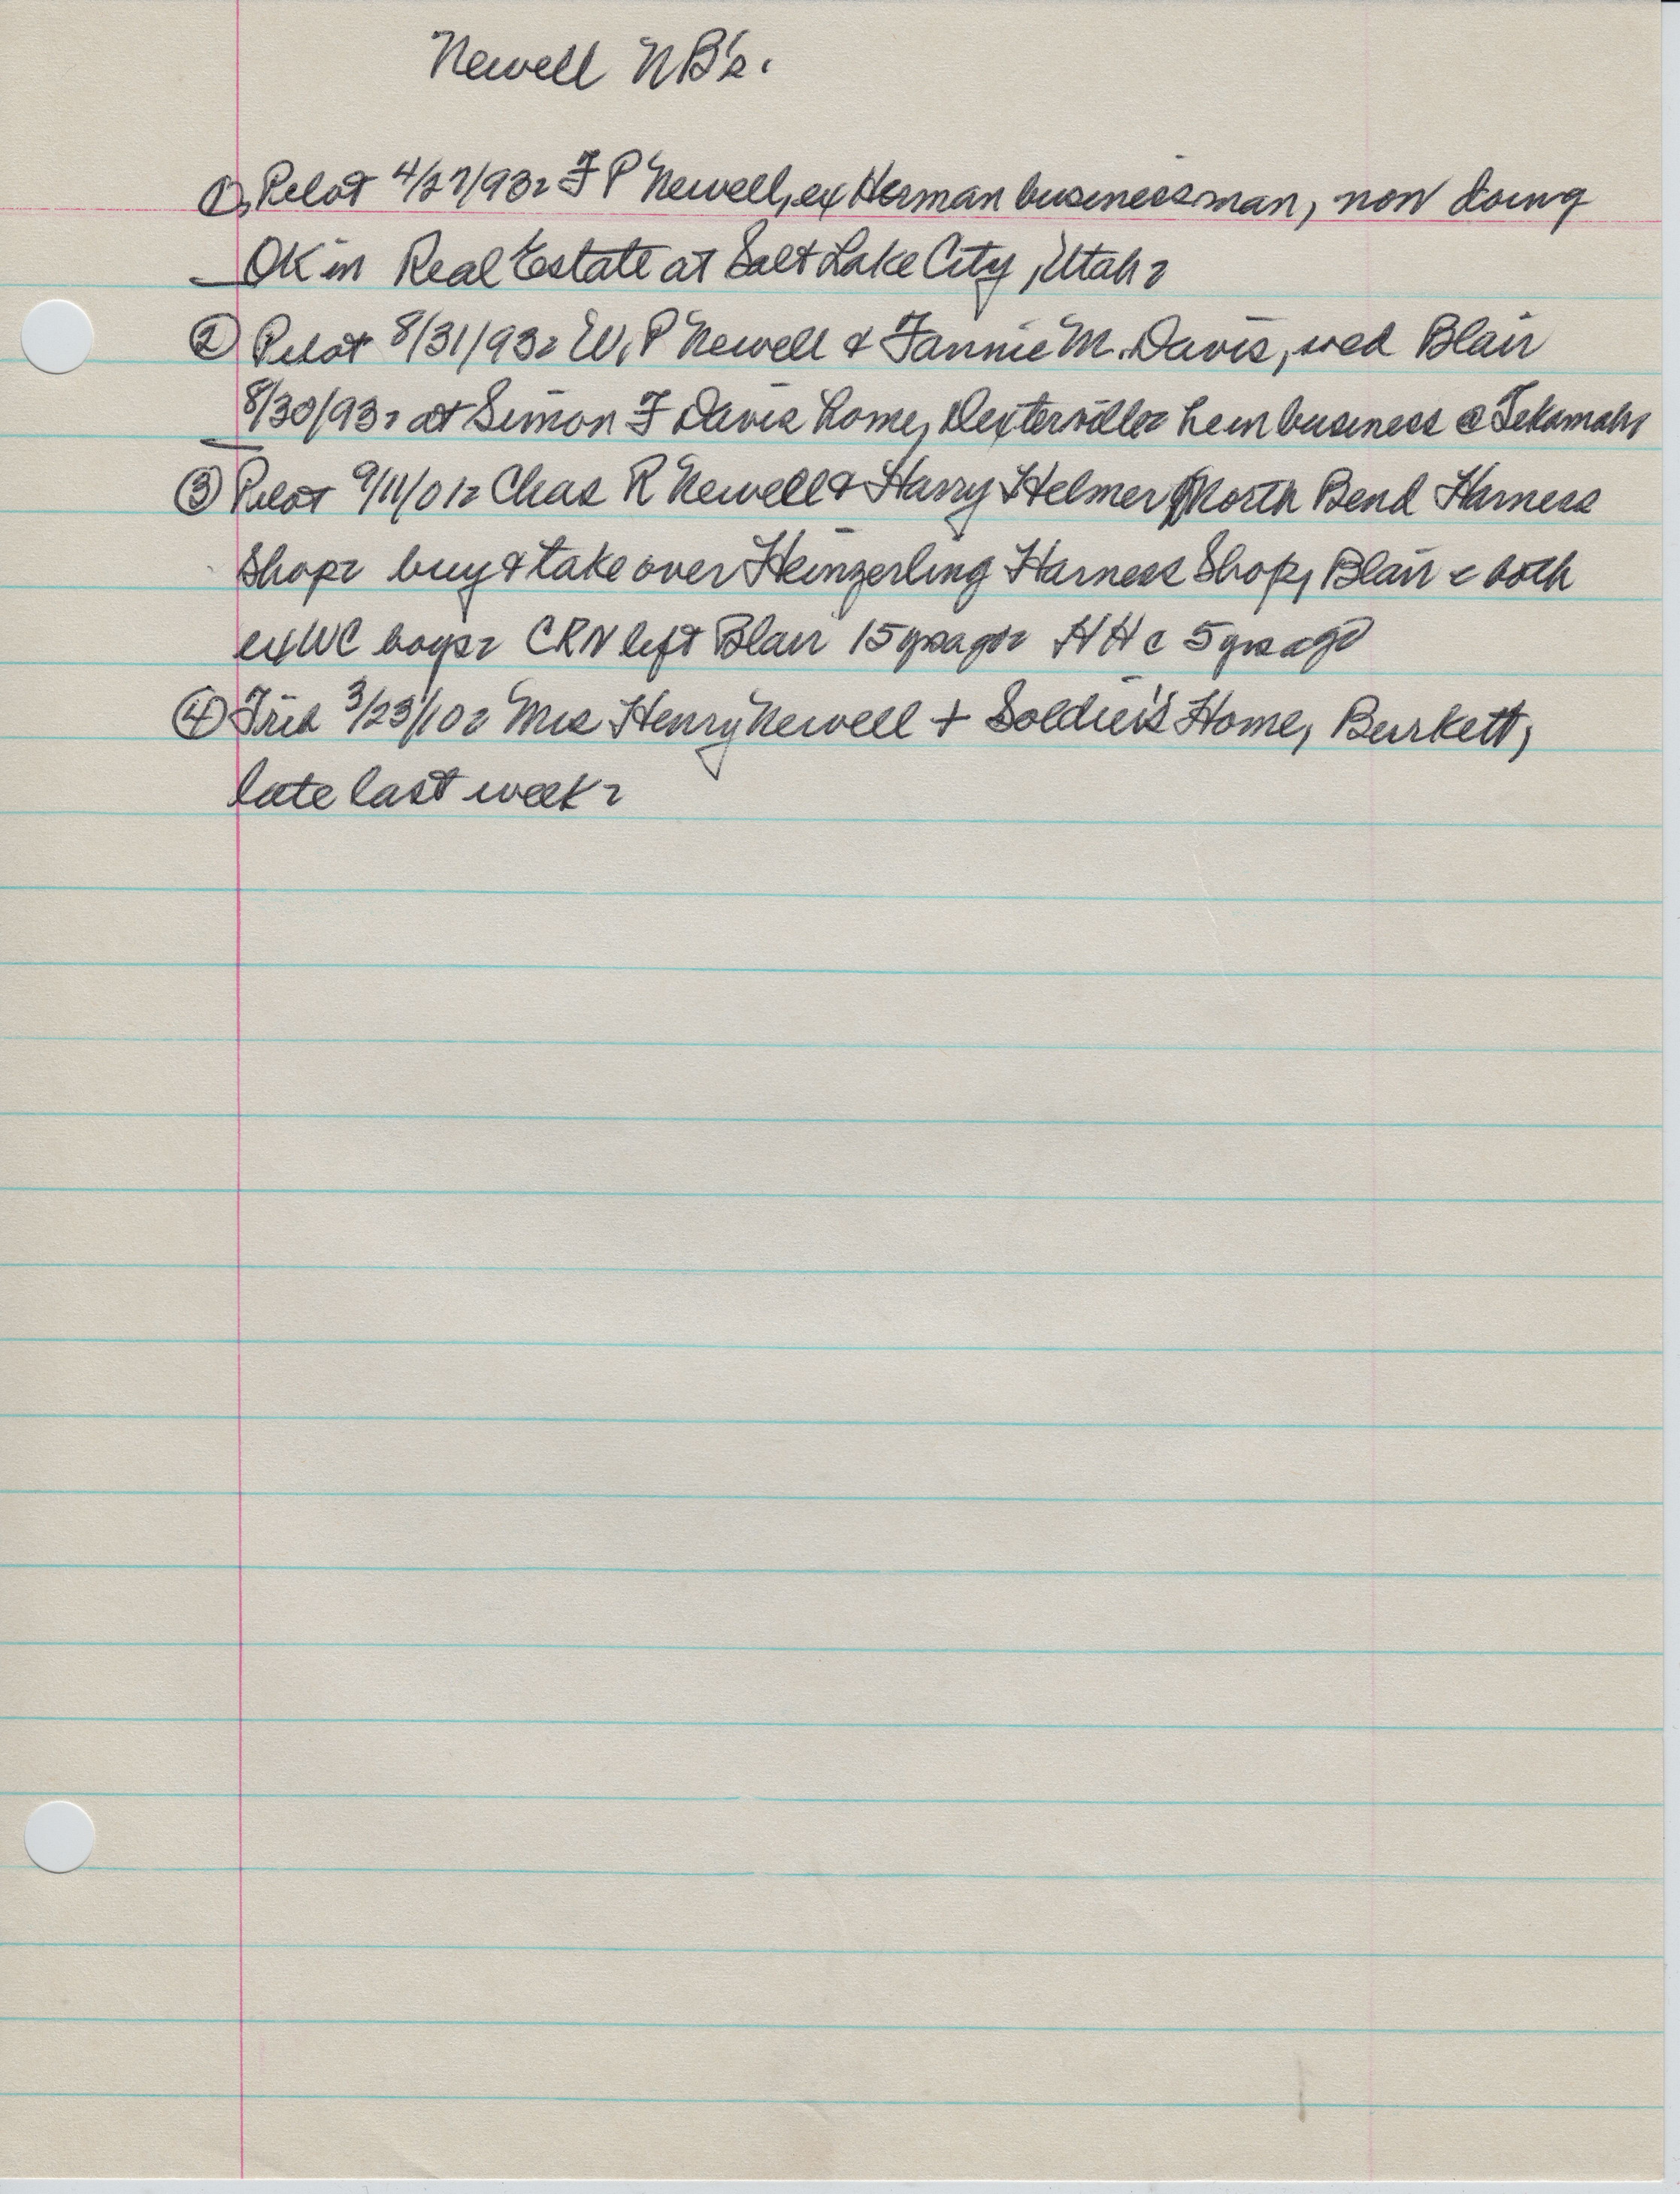 Newell NB's.
① Pilot 4/27/93: F P Newell, ex Herman businessman, now doing
OK in Real Estate at Salt Lake City, Utah.
② Pilot 8/31/93: W. P Newell & Fannie M. Davis, wed Blair
8/30/93, at Simon F Davis home, Dexterville: he in business @ Tekamah,
③ Pilot 9/11/01: Chas R Newell & Harry Helmer North Bend Harness
Shop: buy & take over Heinzerling Harness Shop, Blair : both
ex WC boys: CRN left Blair 15 yrs ago: HH : 5 yrs ago
④ Trib 3/23/10: Mrs Henry Newell + Soldier's Home, Burkett,
late last week.